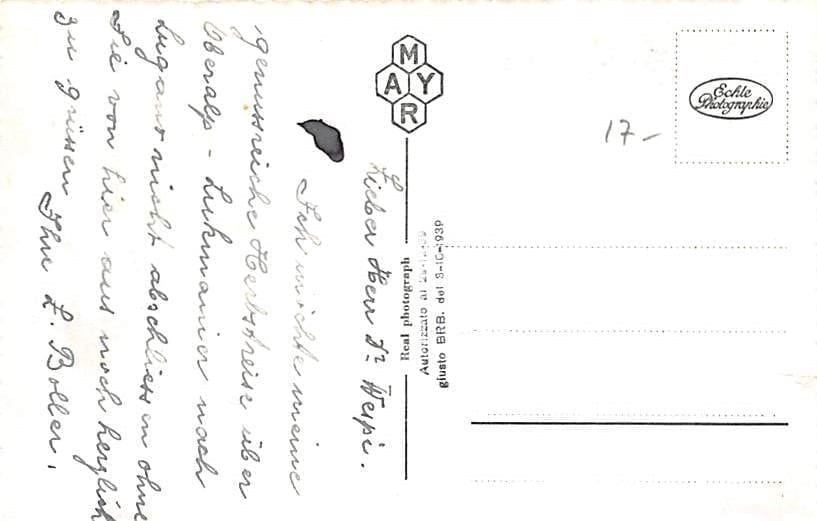 Lieber Herr Dr Wespi.
Ich möchte meine
genussreiche Herbstreise über
Oberalp - Lukmanier nach
Lugano nicht abschliessen ohne
Sie von hier aus noch herzlich
zu grüssen Ihr L. Boller.
MAYR
Real photograph
Autorizzato al
giusto BRB. del 3-10-1939
Echte
Photographie
17.-